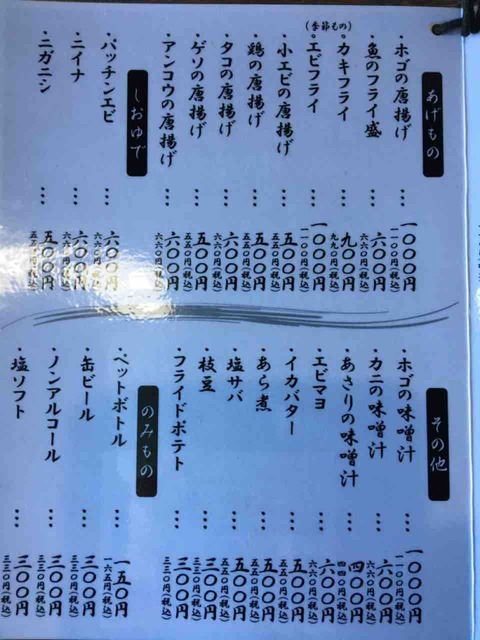 あげもの
・ホゴの唐揚げ … 一〇〇〇円
一一〇〇円(税込)
・魚のフライ盛 … 六〇〇円
六六〇円(税込)
・カキフライ … 九〇〇円
九九〇円(税込)
(季節もの)
・エビフライ … 一〇〇〇円
一一〇〇円(税込)
・小エビの唐揚げ … 五〇〇円
五五〇円(税込)
・鶏の唐揚げ … 五〇〇円
五五〇円(税込)
・タコの唐揚げ … 六〇〇円
六六〇円(税込)
・ゲソの唐揚げ … 五〇〇円
五五〇円(税込)
・アンコウの唐揚げ … 六〇〇円
六六〇円(税込)
しおゆで
・パッチンエビ … 六〇〇円
六六〇円(税込)
・ニイナ … 六〇〇円
六六〇円(税込)
・ニガニシ … 五〇〇円
五五〇円(税込)
その他
・ホゴの味噌汁 … 一〇〇〇円
一一〇〇円(税込)
・カニの味噌汁 … 六〇〇円
六六〇円(税込)
・あさりの味噌汁 … 四〇〇円
四四〇円(税込)
・エビマヨ … 六〇〇円
六六〇円(税込)
・イカバター … 五〇〇円
五五〇円(税込)
・あら煮 … 五〇〇円
五五〇円(税込)
・塩サバ … 五〇〇円
五五〇円(税込)
・枝豆 … 三〇〇円
三三〇円(税込)
・フライドポテト … 三〇〇円
三三〇円(税込)
のみもの
・ペットボトル … 一五〇円
一六五円(税込)
・缶ビール … 三〇〇円
三三〇円(税込)
・ノンアルコール … 三〇〇円
三三〇円(税込)
・塩ソフト … 三〇〇円
三三〇円(税込)